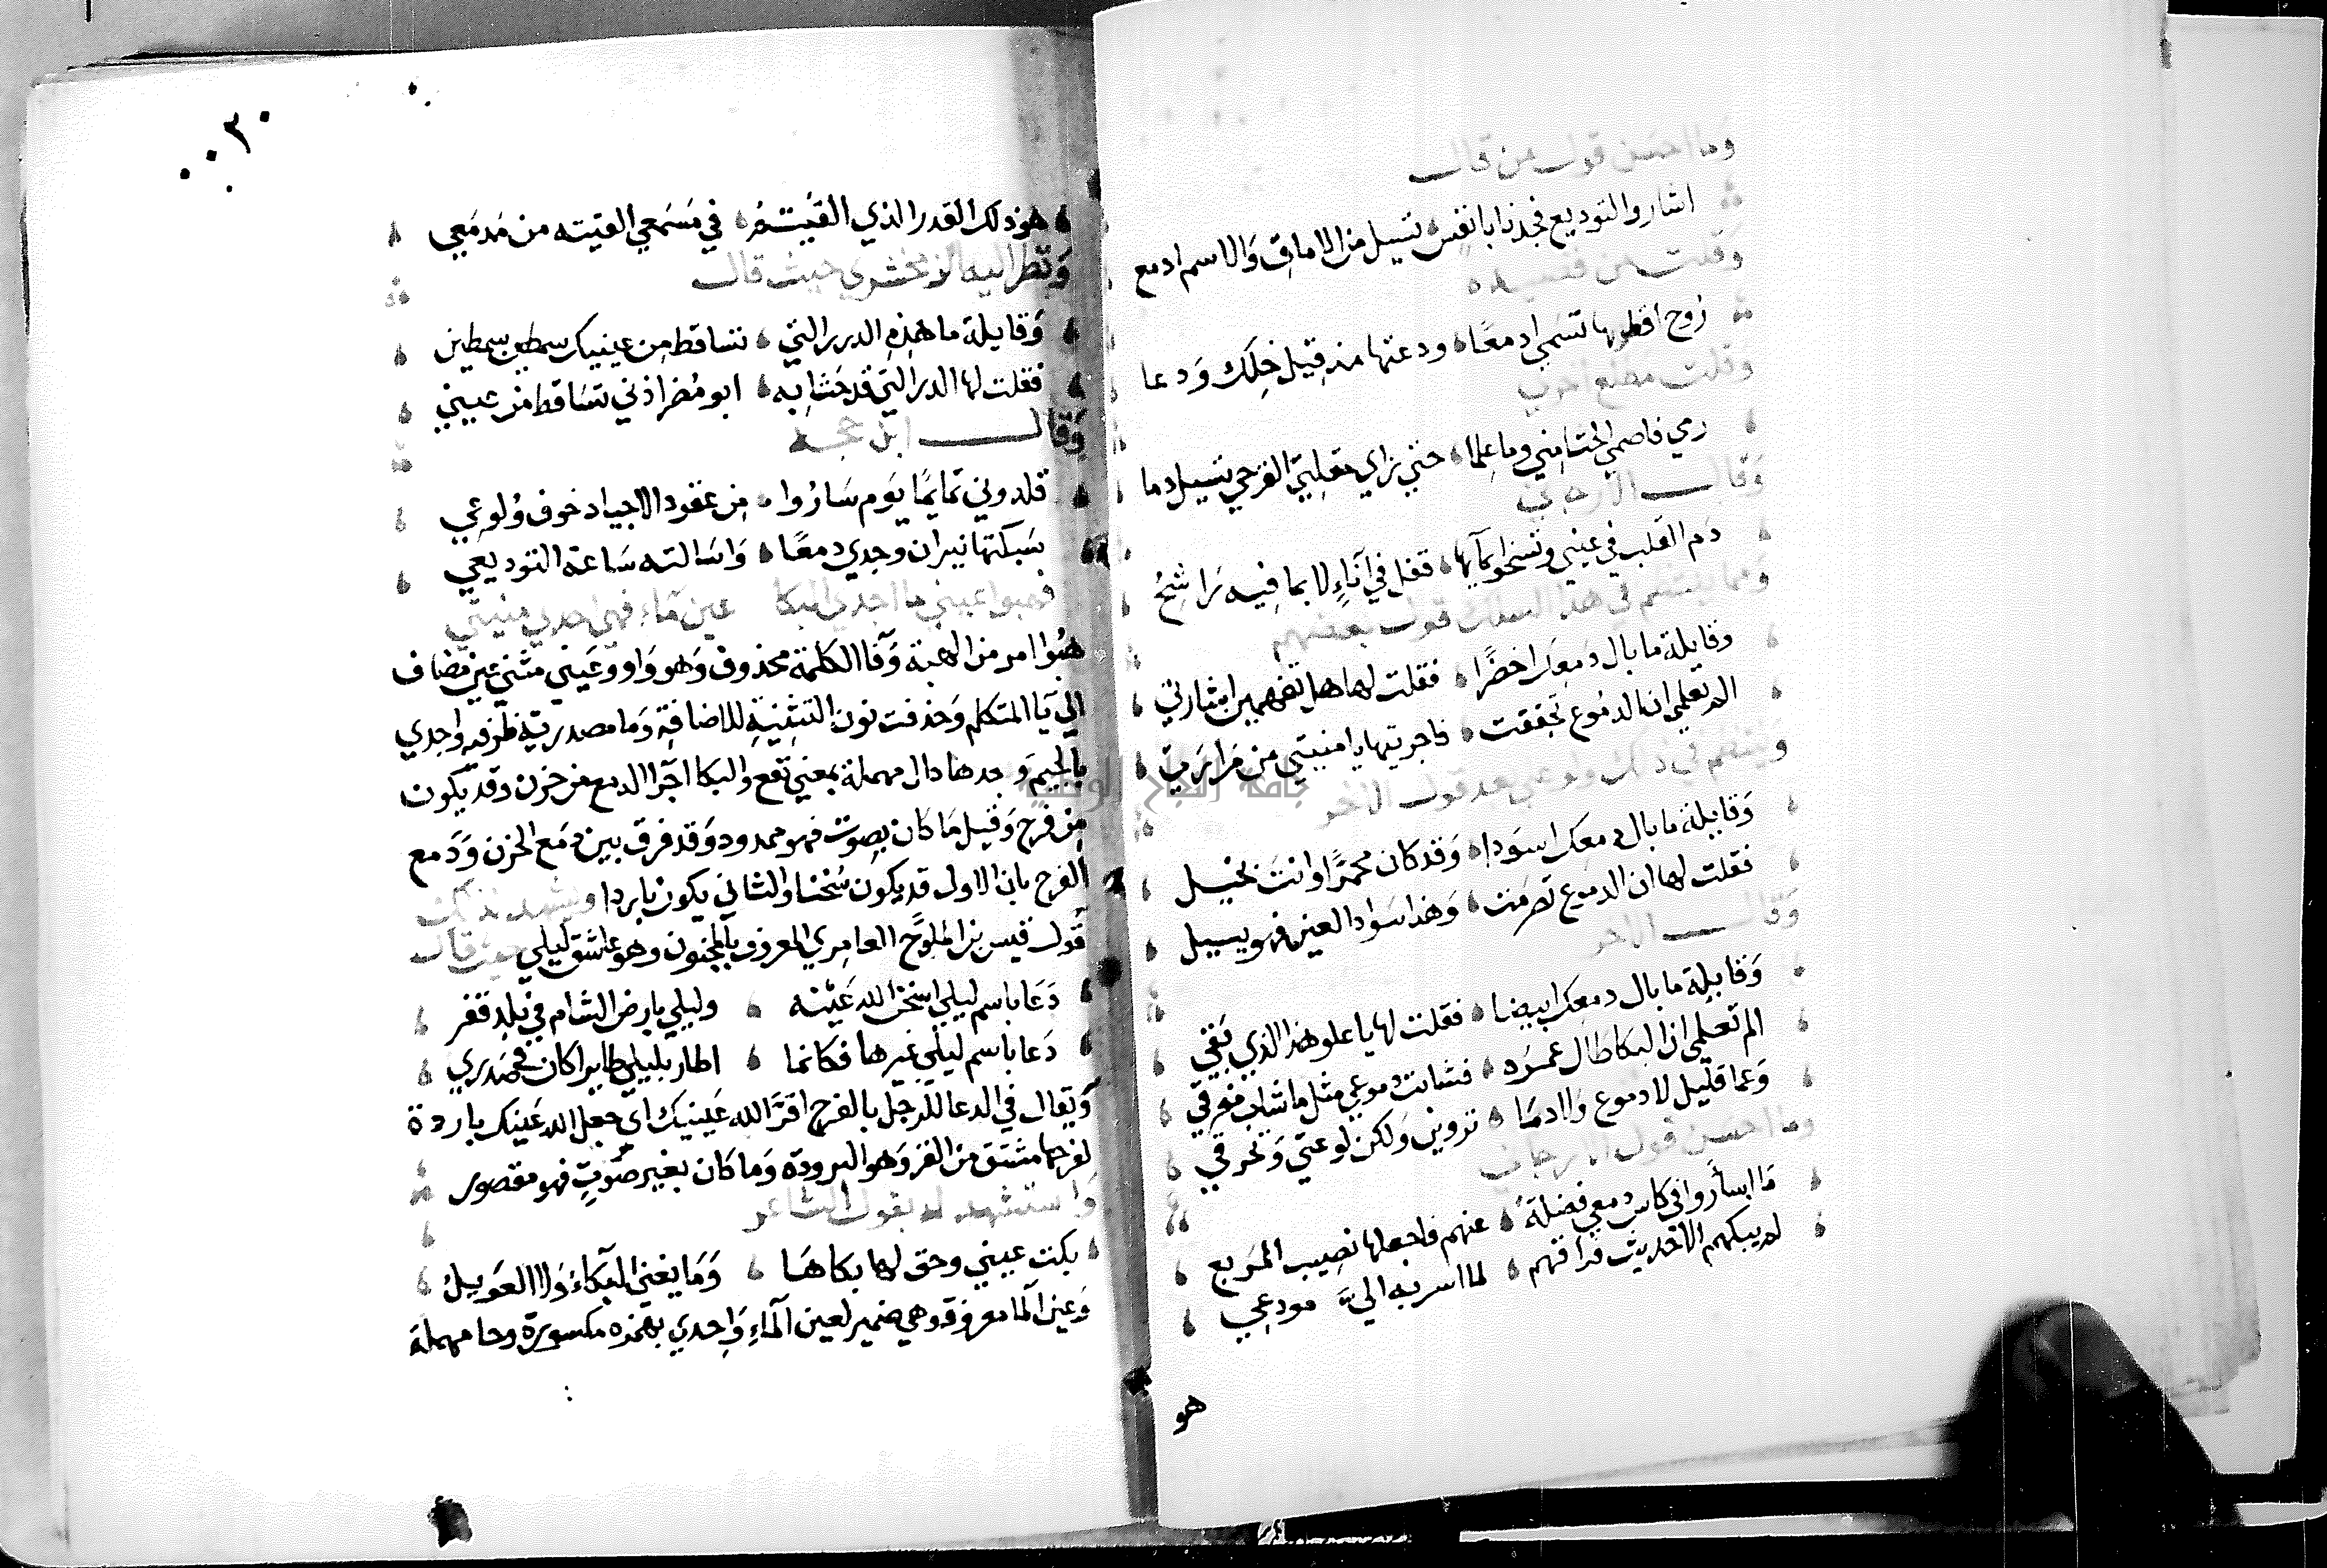 وما احسن قول من قال
اشاروا لتوديع فجدنا بانفس تسيل من الاماق والاسم ادمع
وقلت من قصيده
روح اقطرها تسمي ادمعا ودعتها مذ قيل خلك ودعا
وقلت مطلع اخري
رمي فاصمي الحشا مني وما علما حتي راي مقلتي القرحي تسيل دما
وقال الارجاني
دم القلب في عيني وتسخوا بمآيها فقل في آناءٍ لا بما فيه راشحُ
ومما ينتظم في هذا السلك قول بعضهم
وقايلة ما بال دمعك اخضرا فقلت لها هل تفهمين اشارتي
الم تعلمي ان الدموع تجففت فاجريتها يا منيتي من مرارتي
وينتظم في ذلك قول الاخر
وقايلة ما بال دمعك اسودا وقد كان محمرًّا وانت نحيل
فقلت لها ان الدموع تصرمت وهذا سواد العين فهو يسيل
وقال الاخر
وقايلة ما بال دمعك ابيضا فقلت لها يا علو هذا الذي بقي
الم تعلمي ان البكا طال عمره فشابت دموعي مثل ما شاب مفرقي
وعما قليل لا دموع ولا دما تروين ولكن لوعتي وتحرقي
وما احسن قول الارجاني
ما اسأروا في كاس دمعي فضلة عنهم فاجعلها نصيب المربع
لم يبكهم الا حديث فراقهم لما اسر به اليّ مودعي
هو
٠٠٣٠
هو ذلك القدر الذي القيتم في مسمعي القيته من مدمعي
ونظر اليه الزمخشري حيث قال
وقايلة ما هذه الدرر التي تتساقط من عينيك سمطين سمطين
فقلت لها الدر التي قد حشا به ابو مضر اذني تساقط من عيني
وقال ابن حجة
قلدوني تمايما يوم ساروا من عقود الاجياد خوف ولوعي
سبكتها نيران وجدي دمعا واسالته ساعة التوديعي
فهبوا عيني ما اجدي البكا عين ماء فهي احدي منيتي
هبوا امر من الهبة وفا الكلمة محذوف وهو واو وعيني مثني عين مضاف
الي يا المتكلم وحذفت نون التثنية للاضافة وما مصدرية ظرفيه واجدي
بالجيم وبعدها دال مهملة بمعني نفع والبكا اجرا الدمع من حزن وقد يكون
من فرح وقيل ما كان بصوت فهو ممدود وقد فرق بين دمع الحزن ودمع
الفرح بان الاول قد يكون سخنا والثاني يكون باردا ويشهد لذلك
قول قيس بن الملوَّح العامري المعروف بالمجنون وهو عاشق ليلي حيث قال
دعا باسم ليلي اسخن الله عينه وليلي بارض الشام في بلد قفر
دعا باسم ليلي غيرها فكانما اطار بليلي طايرا كان في صدري
ويقال في الدعا للرجل بالفرح اقرّ الله عينيك اي جعل الله عينك باردة
لفرحها مشتق من القر وهو البرودة وما كان بغير صوتٍ فهو مقصور
واستشهد له بقول الشاعر
بكت عيني وحق لها بكاها وما يغني البكاءُ ولا العويلُ
وعين الما معروفة وهي ضمير لعين الماءِ واحدي بهمزه مكسورة وحا مهملة